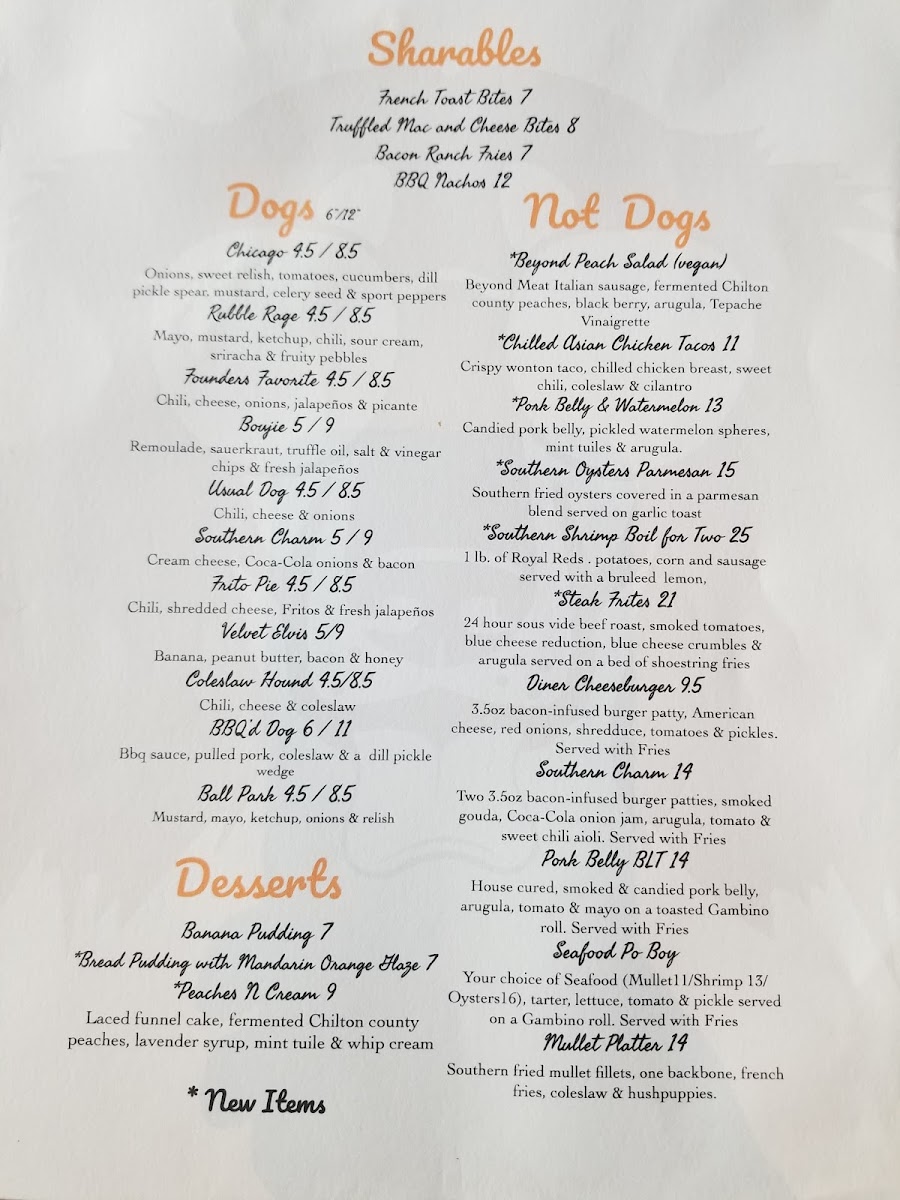 Sharables
French Toast Bites 7
Truffled Mac and Cheese Bites 8
Bacon Ranch Fries 7
BBQ Nachos 12
Dogs 6"/12"
Chicago 4.5 / 8.5
Onions, sweet relish, tomatoes, cucumbers, dill
pickle spear, mustard, celery seed & sport peppers
Rubble Rage 4.5 / 8.5
Mayo, mustard, ketchup, chili, sour cream,
sriracha & fruity pebbles
Founders Favorite 4.5 / 8.5
Chili, cheese, onions, jalapeños & picante
Boujie 5 / 9
Remoulade, sauerkraut, truffle oil, salt & vinegar
chips & fresh jalapeños
Usual Dog 4.5 / 8.5
Chili, cheese & onions
Southern Charm 5 / 9
Cream cheese, Coca-Cola onions & bacon
Frito Pie 4.5 / 8.5
Chili, shredded cheese, Fritos & fresh jalapeños
Velvet Elvis 5/9
Banana, peanut butter, bacon & honey
Coleslaw Hound 4.5/8.5
Chili, cheese & coleslaw
BBQ'd Dog 6 / 11
Bbq sauce, pulled pork, coleslaw & a dill pickle
wedge
Ball Park 4.5 / 8.5
Mustard, mayo, ketchup, onions & relish
Desserts
Banana Pudding 7
*Bread Pudding with Mandarin Orange Glaze 7
*Peaches N Cream 9
Laced funnel cake, fermented Chilton county
peaches, lavender syrup, mint tuile & whip cream
* New Items
Not Dogs
*Beyond Peach Salad (vegan)
Beyond Meat Italian sausage, fermented Chilton
county peaches, black berry, arugula, Tepache
Vinaigrette
*Chilled Asian Chicken Tacos 11
Crispy wonton taco, chilled chicken breast, sweet
chili, coleslaw & cilantro
*Pork Belly & Watermelon 13
Candied pork belly, pickled watermelon spheres,
mint tuiles & arugula.
*Southern Oysters Parmesan 15
Southern fried oysters covered in a parmesan
blend served on garlic toast
*Southern Shrimp Boil for Two 25
1 lb. of Royal Reds . potatoes, corn and sausage
served with a bruleed lemon,
*Steak Frites 21
24 hour sous vide beef roast, smoked tomatoes,
blue cheese reduction, blue cheese crumbles &
arugula served on a bed of shoestring fries
Diner Cheeseburger 9.5
3.5oz bacon-infused burger patty, American
cheese, red onions, shredduce, tomatoes & pickles.
Served with Fries
Southern Charm 14
Two 3.5oz bacon-infused burger patties, smoked
gouda, Coca-Cola onion jam, arugula, tomato &
sweet chili aioli. Served with Fries
Pork Belly BLT 14
House cured, smoked & candied pork belly,
arugula, tomato & mayo on a toasted Gambino
roll. Served with Fries
Seafood Po Boy
Your choice of Seafood (Mullet11/Shrimp 13/
Oysters16), tarter, lettuce, tomato & pickle served
on a Gambino roll. Served with Fries
Mullet Platter 14
Southern fried mullet fillets, one backbone, french
fries, coleslaw & hushpuppies.